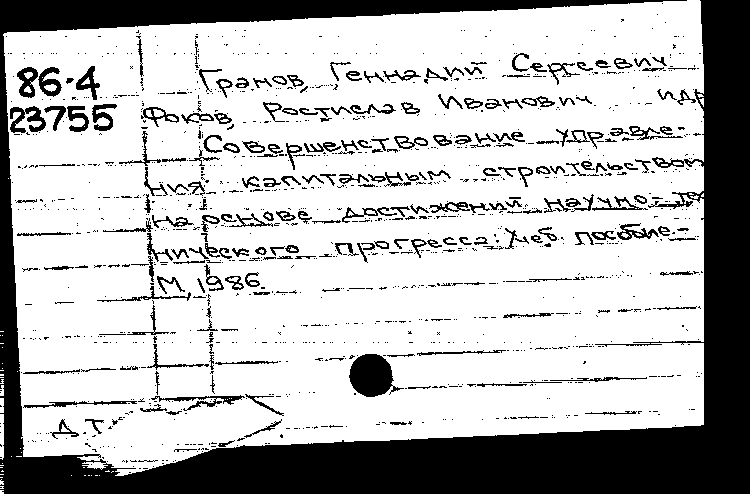 86-4 Гранов, Геннадий Сергеевич
23755 Фоков, Ростислав Иванович идр
Совершенствование управле-
ния капитальным строительством
на основе достижений научно-тех
нического прогресса: Учеб. пособие-
М, 1986
Д.Т.